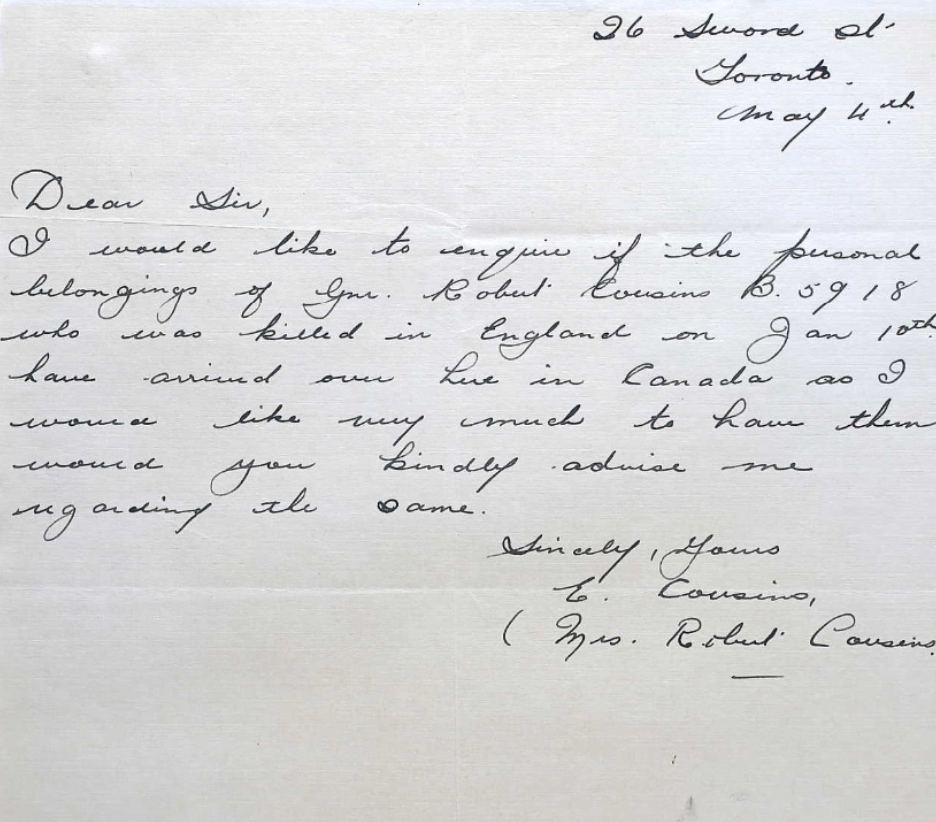 26 Sword St.
Toronto.
May 4th.
Dear Sir,
I would like to enquire if the personal
belongings of Gnr. Robert Cousins B. 5918
who was killed in England on Jan 10th.
have arrived over here in Canada as I
would like very much to have them
would you kindly advise me
regarding the same.
Sincely, Yours
E. Cousins,
( Mrs. Robert Cousins.